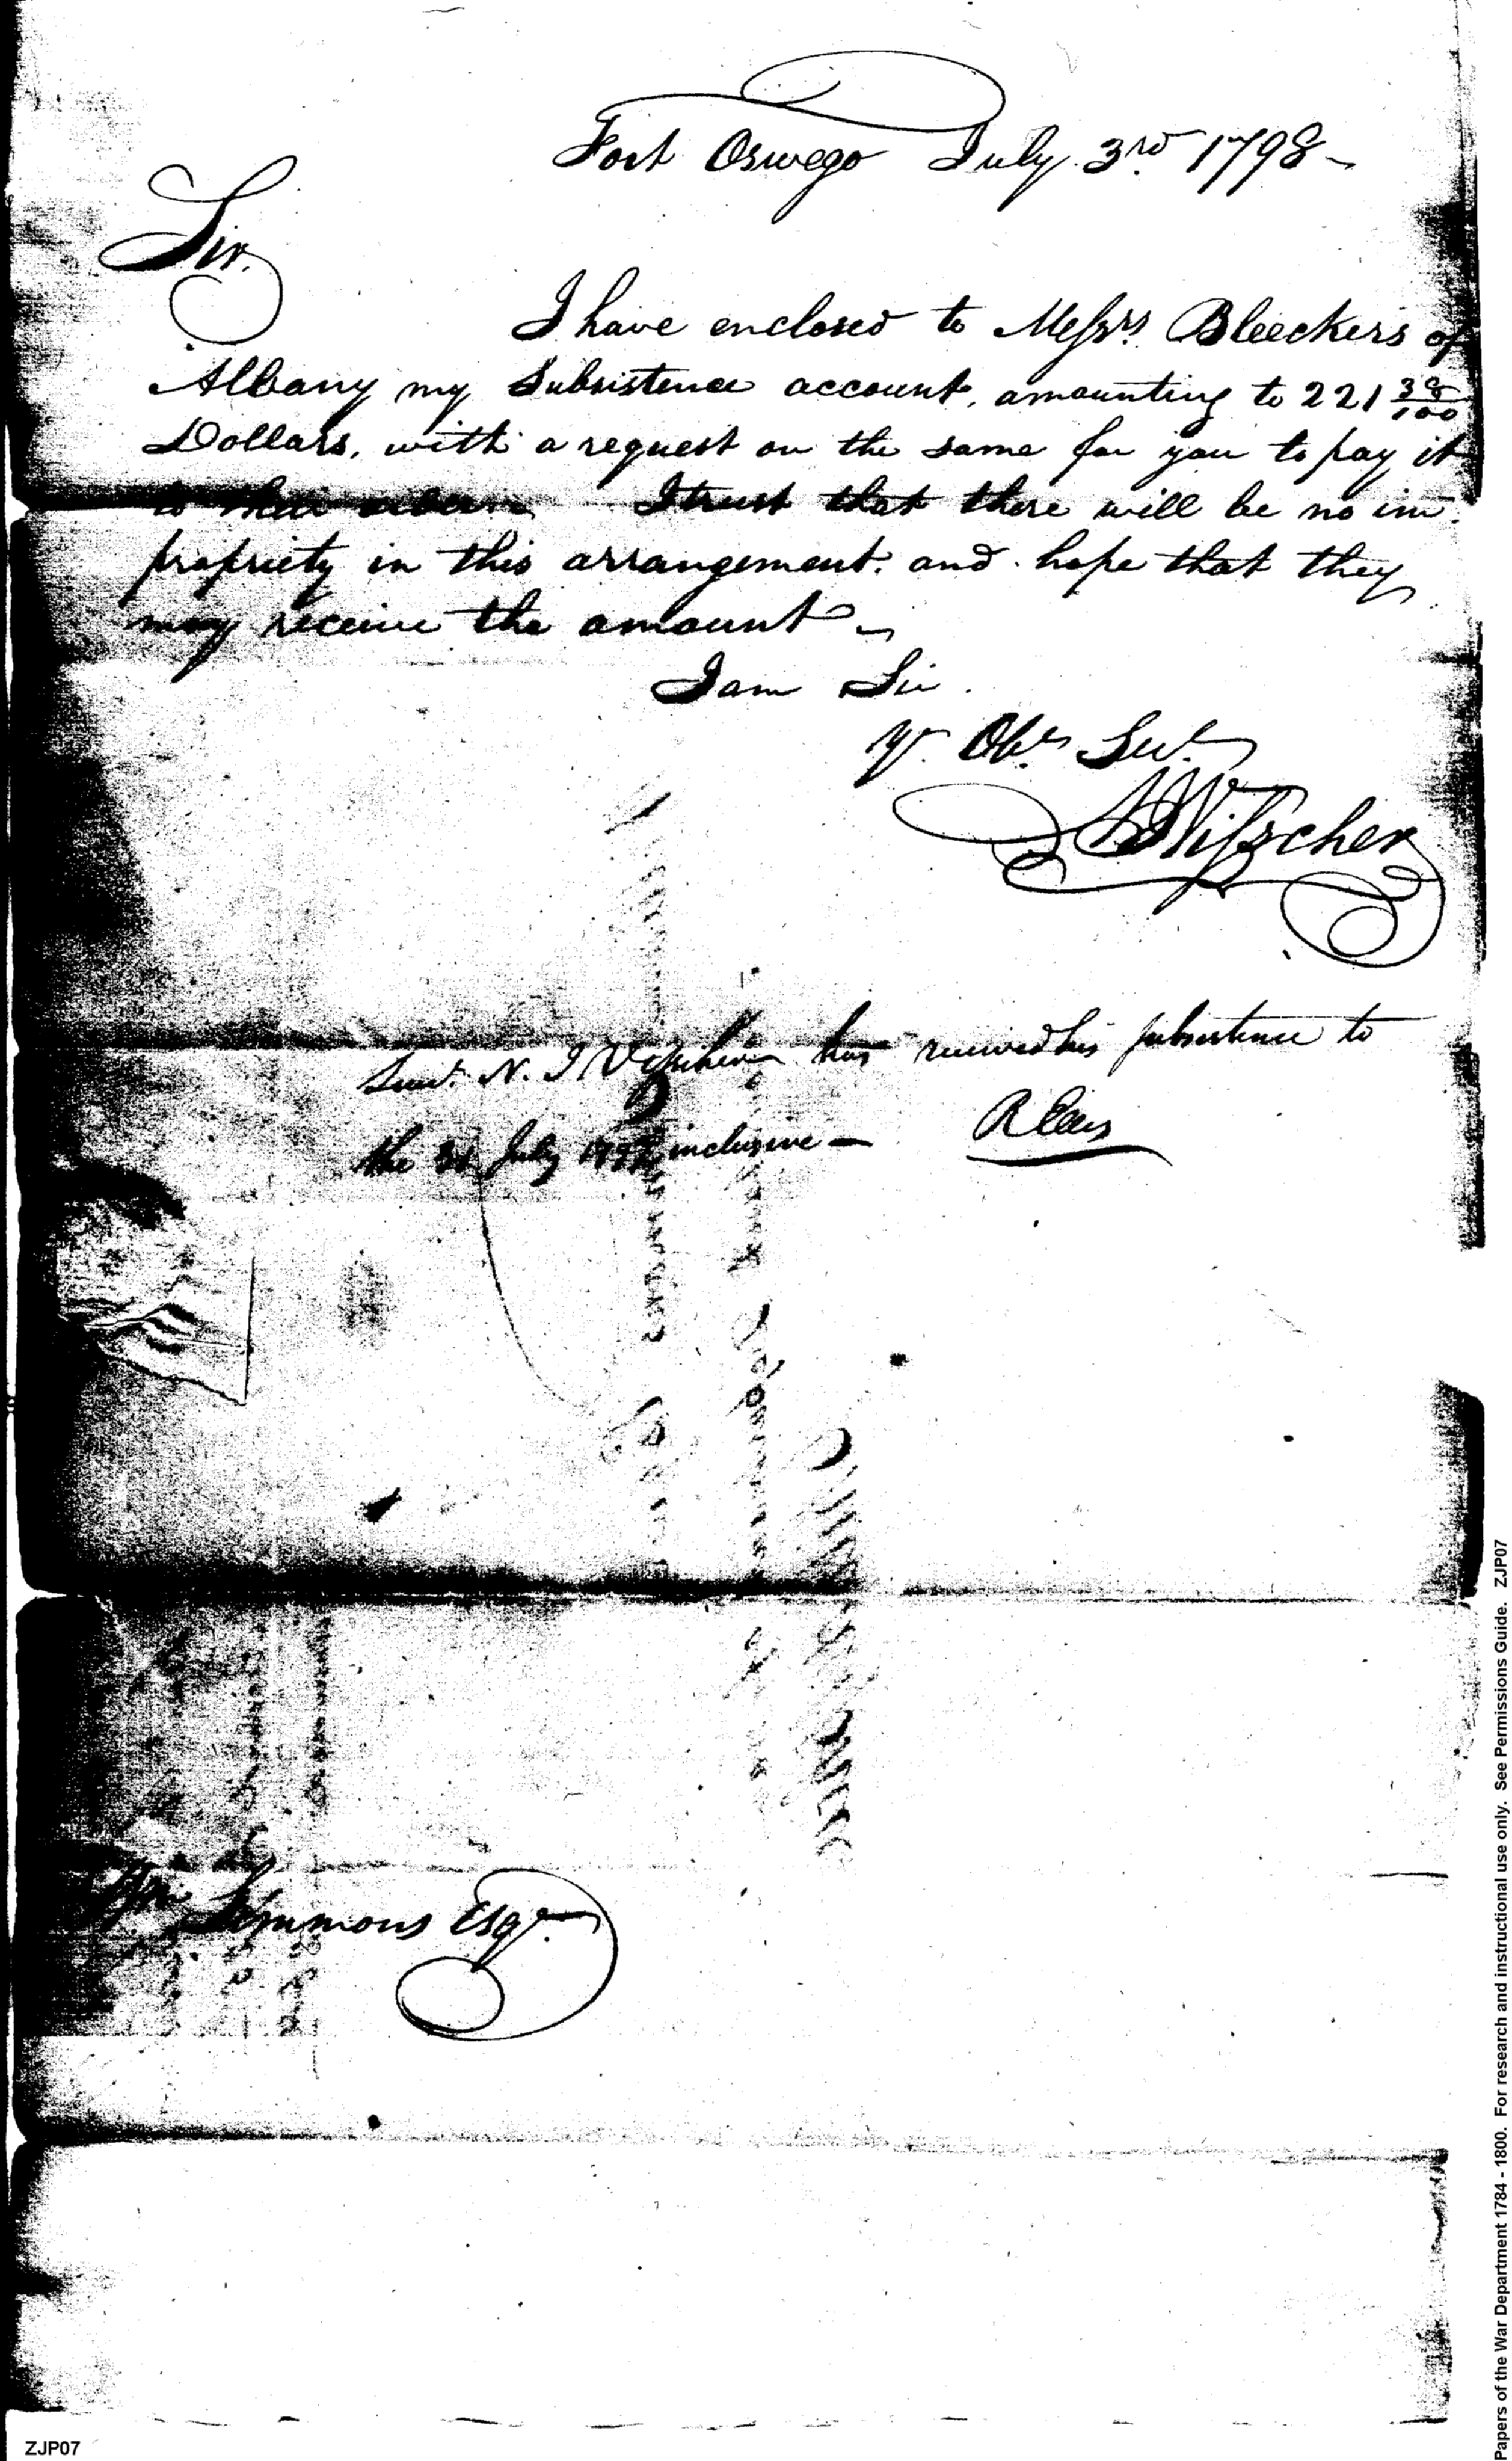 Fort Oswego July 3rd 1798
Sir.
I have enclosed to Messrs Bleeckers of
Albany my Subsistence account, amounting to 221 38/100
Dollars, with a request on the same for you to pay it
to their order. I trust that there will be no im-
propriety in this arrangement. and hope that they
may receive the amount
I am Sir.
Yr. Obt. Servt.
Visscher
Lieut. N. J Visscher has received his subsistence to
the 31 July 1797 inclusive
Simmons Esqr.
ZJP07
Papers of the War Department 1784 - 1800. For research and instructional use only. See Permissions Guide. ZJP07